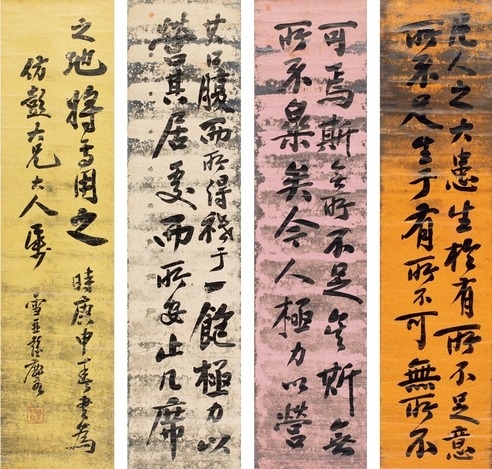 凡人之大患生於有所不足意
所不足生于有所不可無所不
可焉斯無所不足矣斯無
所不樂矣今人極力以營
其口腹而所得秖于一飽極力以
營其居處而所安止几席
之地將焉用之
時庚申春書為
仿彭大兄大人屬
雪亞